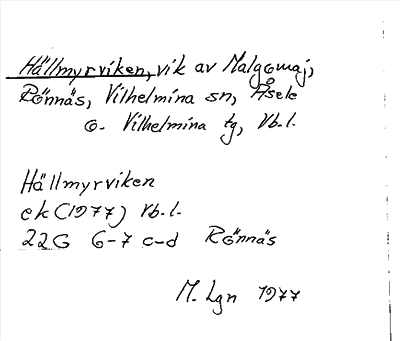 Hällmyrviken, vik av Malgomaj,
Rönnäs, Vilhelmina sn, Åsele
o. Vilhelmina tg, Vb.l.
Hällmyrviken
ek (1977) Vb.l.
22G 6-7 c-d Rönnäs
M. Lgn 1977